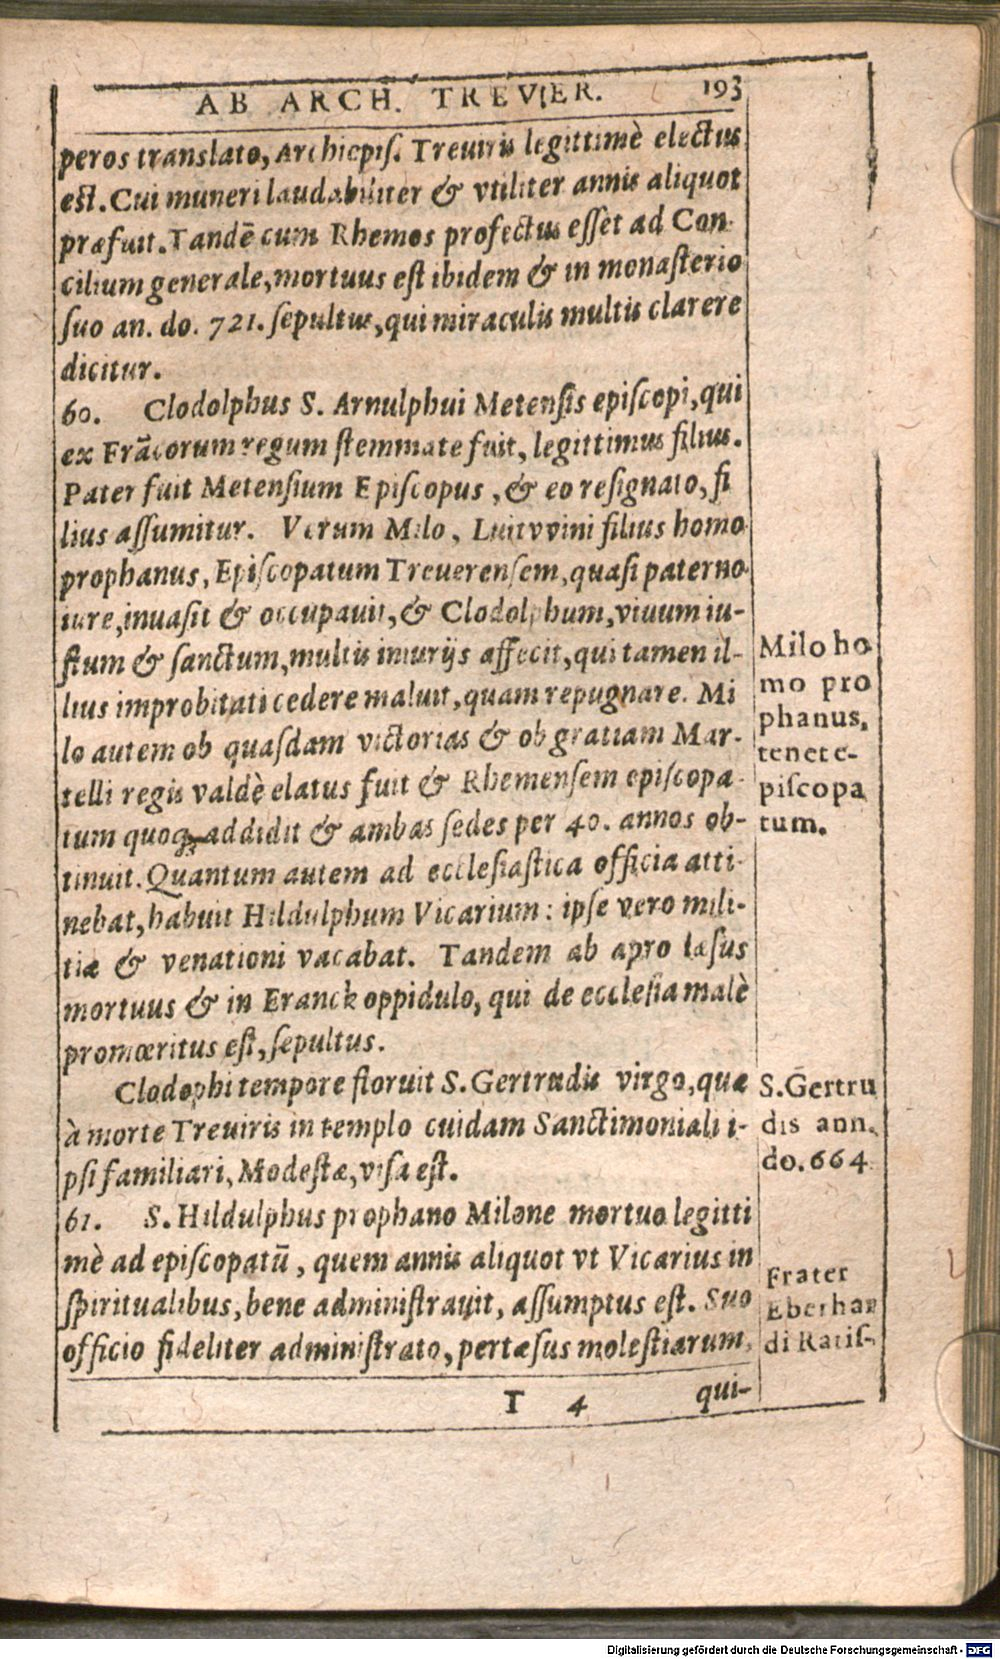 AB ARCH. TREVIER. 193
peros translato, Archiepiſ. Treuiris legittimè electus
eſt. Cui muneri laudabiliter & vtiliter annis aliquot
præfuit. Tandē cum Rhemos profectus eſſet ad Con
cilium generale, mortuus eſt ibidem & in monaſterio
ſuo an. do. 721. ſepultus, qui miraculis multis clarere
dicitur.
60. Clodolphus S. Arnulphui Metenſis epiſcopi, qui
ex Frãcorum regum ſtemmate fuit, legittimus filius.
Pater fuit Metenſium Epiſcopus, & eo reſignato, fi
lius aſſumitur. Verum Milo, Luitvvini filius homo
prophanus, Epiſcopatum Treuerenſem, quaſi paterno
iure, inuaſit & occupauit, & Clodolphum, virum iu-
ſtum & ſanctum, multis iniurijs affecit, qui tamen il-
lius improbitati cedere maluit, quam repugnare. Mi
lo autem ob quaſdam victorias & ob gratiam Mar-
telli regis valdè elatus fuit & Rhemenſem epiſcopa-
tum quoq; addidit & ambas ſedes per 40. annos ob-
tinuit. Quantum autem ad eccleſiaſtica officia atti-
nebat, habuit Hildulphum Vicarium: ipſe vero mili-
tiæ & venationi vacabat. Tandem ab apro læſus
mortuus & in Eranck oppidulo, qui de eccleſia malè
promœritus eſt, ſepultus.
Clodophi tempore floruit S. Gertrudis virgo, quæ
à morte Treuiris in templo cuidam Sanctimoniali i-
pſi familiari, Modeſtæ, viſa eſt.
61. S. Hildulphus prophano Milone mortuo legitti
mè ad epiſcopatū, quem annis aliquot vt Vicarius in
ſpiritualibus, bene adminiſtrauit, aſſumptus eſt. Suo
officio fideliter adminiſtrato, pertæſus moleſtiarum,
T 4 qui-
Milo ho
mo pro
phanus,
tenet e-
piſcopa
tum.
S. Gertru
dis ann.
do. 664
Frater
Eberhar
di Ratiſ-
Digitalisierung gefördert durch die Deutsche Forschungsgemeinschaft - DFG